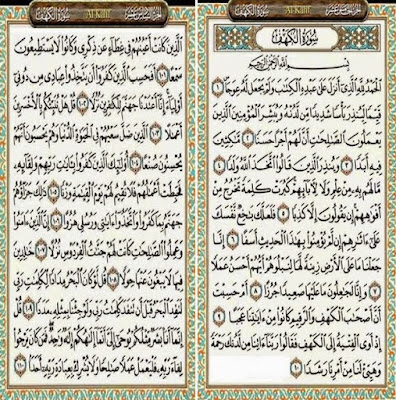 الجزء الخامس عشر Al-Kahf سُورَةُ الكَهْفِ
سُورَةُ الكَهْفِ
بِسْمِ اللَّهِ الرَّحْمَٰنِ الرَّحِيمِ
ٱلْحَمْدُ لِلَّهِ ٱلَّذِىٓ أَنزَلَ عَلَىٰ عَبْدِهِ ٱلْكِتَٰبَ وَلَمْ يَجْعَل لَّهُۥ عِوَجَا ١
قَيِّمًا لِّيُنذِرَ بَأْسًا شَدِيدًا مِّن لَّدُنْهُ وَيُبَشِّرَ ٱلْمُؤْمِنِينَ ٱلَّذِينَ
يَعْمَلُونَ ٱلصَّٰلِحَٰتِ أَنَّ لَهُمْ أَجْرًا حَسَنًا ٢ مَّٰكِثِينَ
فِيهِ أَبَدًا ٣ وَيُنذِرَ ٱلَّذِينَ قَالُوا۟ ٱتَّخَذَ ٱللَّهُ وَلَدًا ٤
مَّا لَهُم بِهِۦ مِنْ عِلْمٍ وَلَا لِءَابَآئِهِمْ كَبُرَتْ كَلِمَةً تَخْرُجُ مِنْ
أَفْوَٰهِهِمْ إِن يَقُولُونَ إِلَّا كَذِبًا ٥ فَلَعَلَّكَ بَٰخِعٌ نَّفْسَكَ
عَلَىٰٓ ءَاثَٰرِهِمْ إِن لَّمْ يُؤْمِنُوا۟ بِهَٰذَا ٱلْحَدِيثِ أَسَفًا ٦ إِنَّا
جَعَلْنَا مَا عَلَى ٱلْأَرْضِ زِينَةً لَّهَا لِنَبْلُوَهُمْ أَيُّهُمْ أَحْسَنُ عَمَلًا
٧ وَإِنَّا لَجَٰعِلُونَ مَا عَلَيْهَا صَعِيدًا جُرُزًا ٨ أَمْ حَسِبْتَ
أَنَّ أَصْحَٰبَ ٱلْكَهْفِ وَٱلرَّقِيمِ كَانُوا۟ مِنْ ءَايَٰتِنَا عَجَبًا ٩
إِذْ أَوَى ٱلْفِتْيَةُ إِلَى ٱلْكَهْفِ فَقَالُوا۟ رَبَّنَآ ءَاتِنَا مِن لَّدُنكَ رَحْمَةً
وَهَيِّئْ لَنَا مِنْ أَمْرِنَا رَشَدًا ١٠
الجزء السادس عشر Al-Kahf سُورَةُ الكَهْفِ
ٱلَّذِينَ كَانَتْ أَعْيُنُهُمْ فِى غِطَآءٍ عَن ذِكْرِى وَكَانُوا۟ لَا يَسْتَطِيعُونَ
سَمْعًا ١٠١ أَفَحَسِبَ ٱلَّذِينَ كَفَرُوٓا۟ أَن يَتَّخِذُوا۟ عِبَادِى مِن دُونِىٓ
أَوْلِيَآءَ إِنَّآ أَعْتَدْنَا جَهَنَّمَ لِلْكَٰفِرِينَ نُزُلًا ١٠٢ قُلْ هَلْ نُنَبِّئُكُم بِٱلْأَخْسَرِينَ
أَعْمَٰلًا ١٠٣ ٱلَّذِينَ ضَلَّ سَعْيُهُمْ فِى ٱلْحَيَوٰةِ ٱلدُّنْيَا وَهُمْ يَحْسَبُونَ أَنَّهُمْ
يُحْسِنُونَ صُنْعًا ١٠٤ أُو۟لَٰٓئِكَ ٱلَّذِينَ كَفَرُوا۟ بِـَٔايَٰتِ رَبِّهِمْ وَلِقَآئِهِۦ
فَحَبِطَتْ أَعْمَٰلُهُمْ فَلَا نُقِيمُ لَهُمْ يَوْمَ ٱلْقِيَٰمَةِ وَزْنًا ١٠٥ ذَٰلِكَ جَزَآؤُهُمْ
جَهَنَّمُ بِمَا كَفَرُوا۟ وَٱتَّخَذُوٓا۟ ءَايَٰتِى وَرُسُلِى هُزُوًا ١٠٦ إِنَّ ٱلَّذِينَ ءَامَنُوا۟
وَعَمِلُوا۟ ٱلصَّٰلِحَٰتِ كَانَتْ لَهُمْ جَنَّٰتُ ٱلْفِرْدَوْسِ نُزُلًا ١٠٧ خَٰلِدِينَ
فِيهَا لَا يَبْغُونَ عَنْهَا حِوَلًا ١٠٨ قُل لَّوْ كَانَ ٱلْبَحْرُ مِدَادًا لِّكَلِمَٰتِ رَبِّى
لَنَفِدَ ٱلْبَحْرُ قَبْلَ أَن تَنفَدَ كَلِمَٰتُ رَبِّى وَلَوْ جِئْنَا بِمِثْلِهِۦ مَدَدًا ١٠٩ قُلْ
إِنَّمَآ أَنَا۠ بَشَرٌ مِّثْلُكُمْ يُوحَىٰٓ إِلَىَّ أَنَّمَآ إِلَٰهُكُمْ إِلَٰهٌ وَٰحِدٌ فَمَن كَانَ يَرْجُوا۟
لِقَآءَ رَبِّهِۦ فَلْيَعْمَلْ عَمَلًا صَٰلِحًا وَلَا يُشْرِكْ بِعِبَادَةِ رَبِّهِۦٓ أَحَدًۢا ١١٠